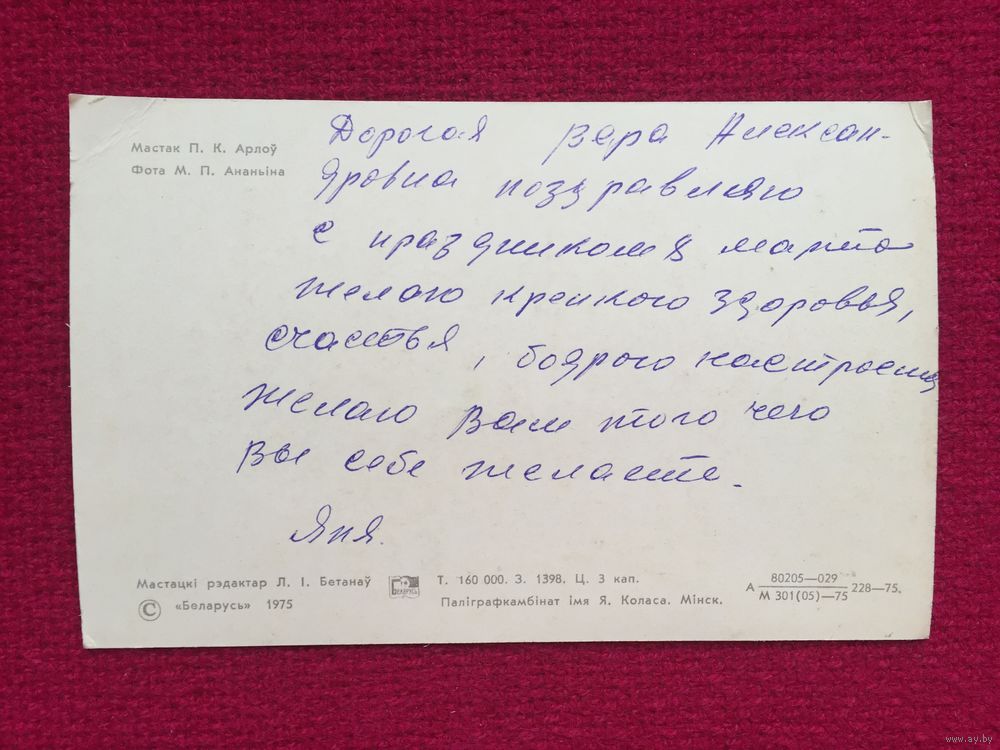 Мастак П. К. Арлоў
Фота М. П. Ананьіна
Дорогая Вера Алексан-
дровна поздравляю
с праздником 8 марта
желаю крепкого здоровья,
счастья, бодрого настроения
желаю Вам того чего
Вы себе желаете.
Яня.
Мастацкі рэдактар Л. І. Бетанаў
© «Беларусь» 1975
БЕЛАРУСЬ
Т. 160 000. З. 1398. Ц. 3 кап.
Паліграфкамбінат імя Я. Коласа. Мінск.
А 80205—029 / М 301(05)—75 228—75.
www.ay.by